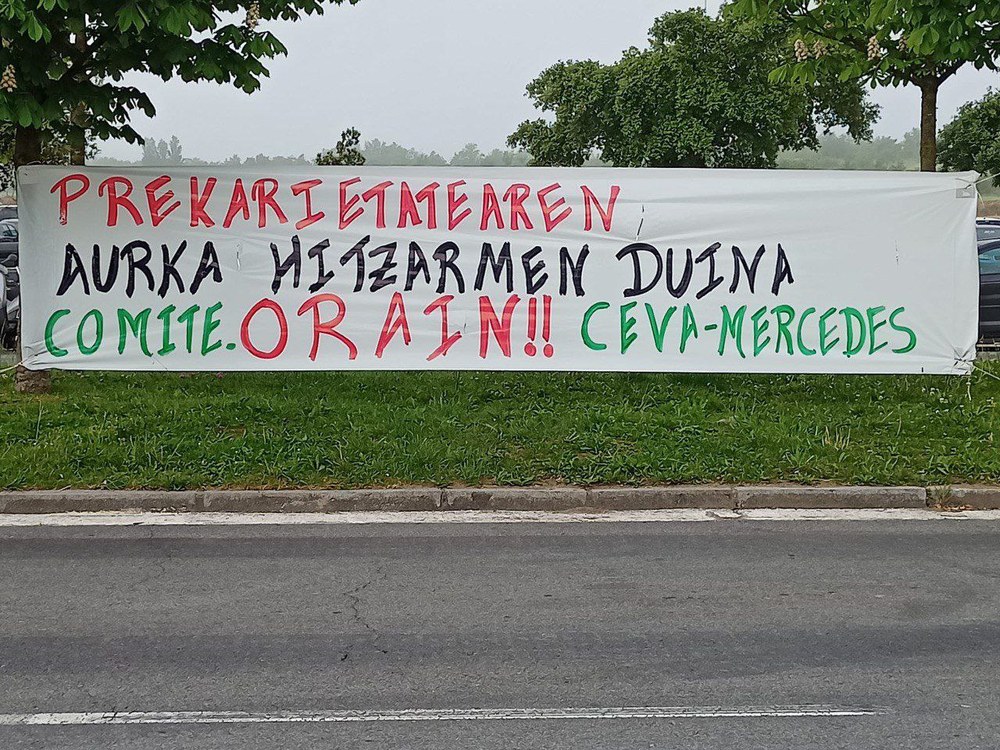 PREKARIETATEAREN
AURKA HITZARMEN DUINA
COMITE. ORAIN!! CEVA-MERCEDES